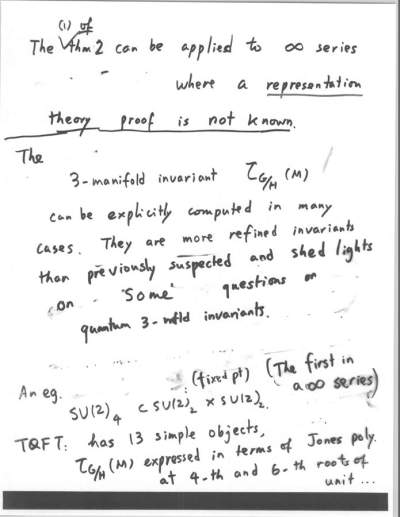 (1) of
The thm 2 can be applied to ∞ series
where a representation
theory proof is not known.
The
3-manifold invariant τ_{G/H}(M)
can be explicitly computed in many
cases. They are more refined invariants
than previously suspected and shed lights
on "Some" questions on
quantum 3-mfld invariants.
(fixed pt) (The first in
An eg. a ∞ series)
SU(2)_4 ⊂ SU(2)_2 × SU(2)_2.
TQFT: has 13 simple objects,
τ_{G/H}(M) expressed in terms of Jones poly.
at 4-th and 6-th roots of
unit ...